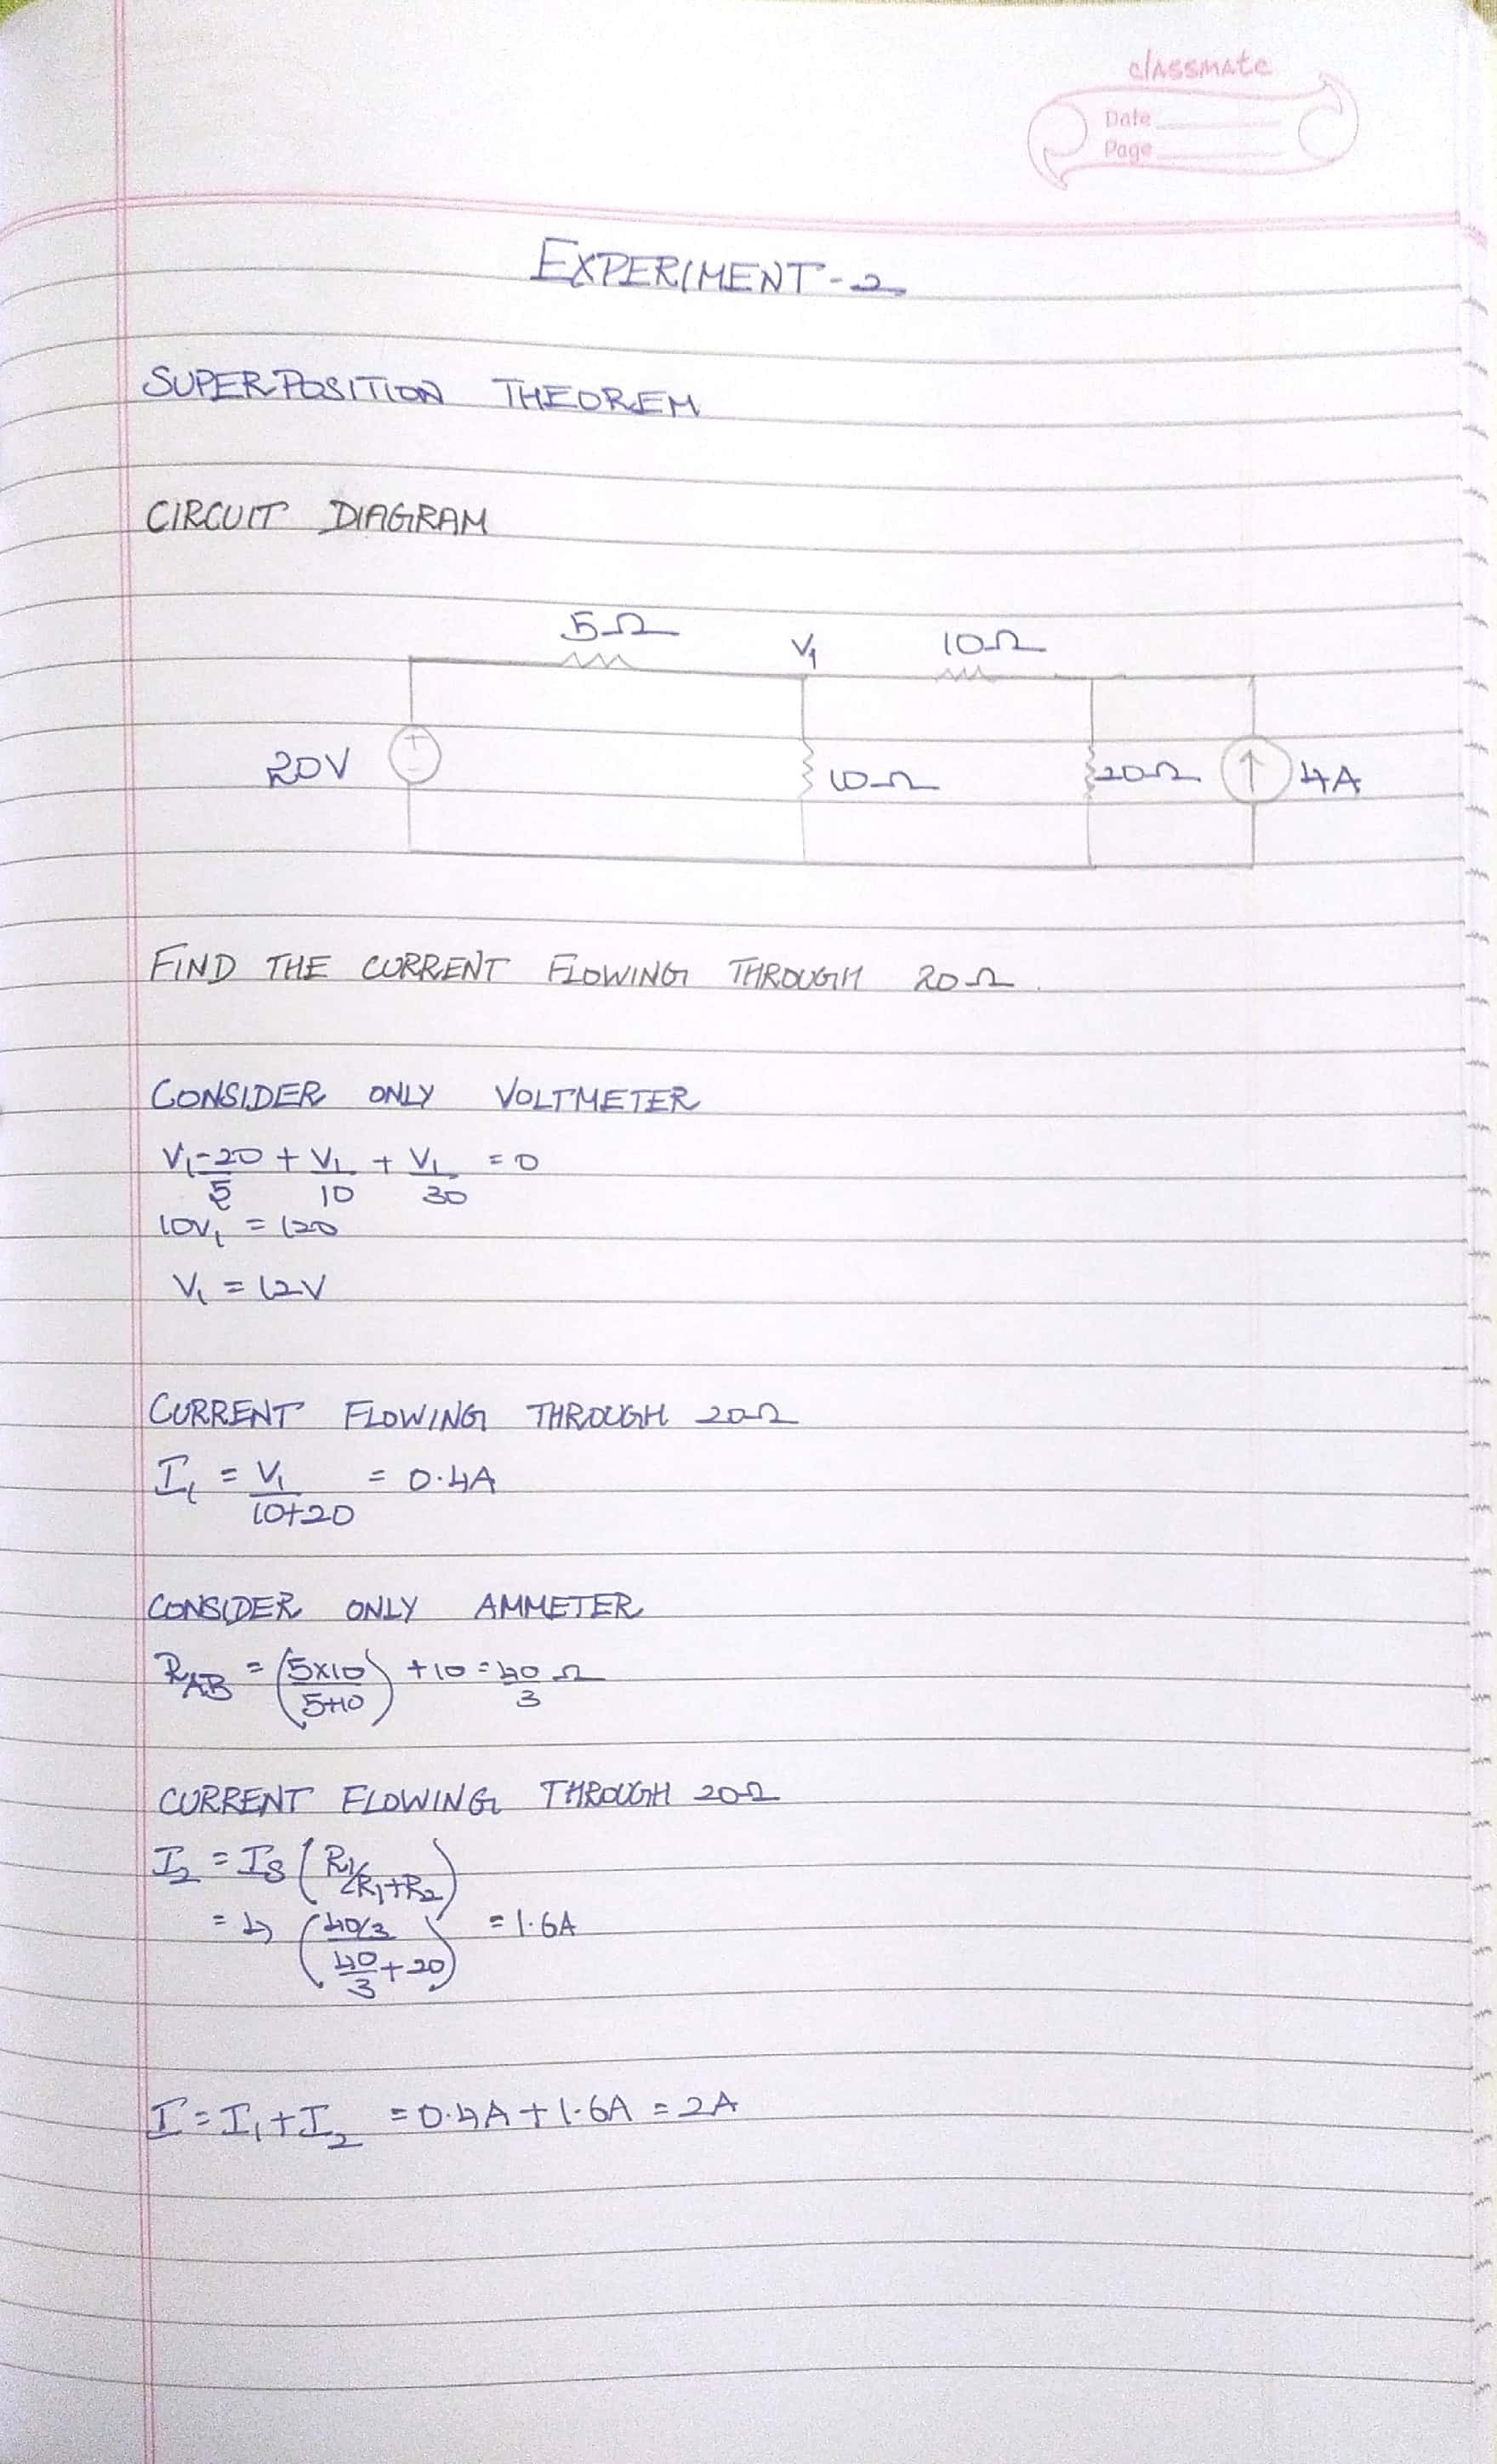 classmate
Date
Page
EXPERIMENT-2
SUPERPOSITION THEOREM
CIRCUIT DIAGRAM
5Ω V1 10Ω
20V + - 10Ω 20Ω ↑ 4A
FIND THE CURRENT FLOWING THROUGH 20Ω.
CONSIDER ONLY VOLTMETER
V1-20/5 + V1/10 + V1/30 = 0
10V1 = 120
V1 = 12V
CURRENT FLOWING THROUGH 20Ω
I1 = V1/10+20 = 0.4A
CONSIDER ONLY AMMETER
RAB = (5×10/5+10) + 10 = 40/3 Ω
CURRENT FLOWING THROUGH 20Ω
I2 = IS (R1/R1+R2)
= 4 (40/3 / 40/3 + 20) = 1.6A
I = I1 + I2 = 0.4A + 1.6A = 2A